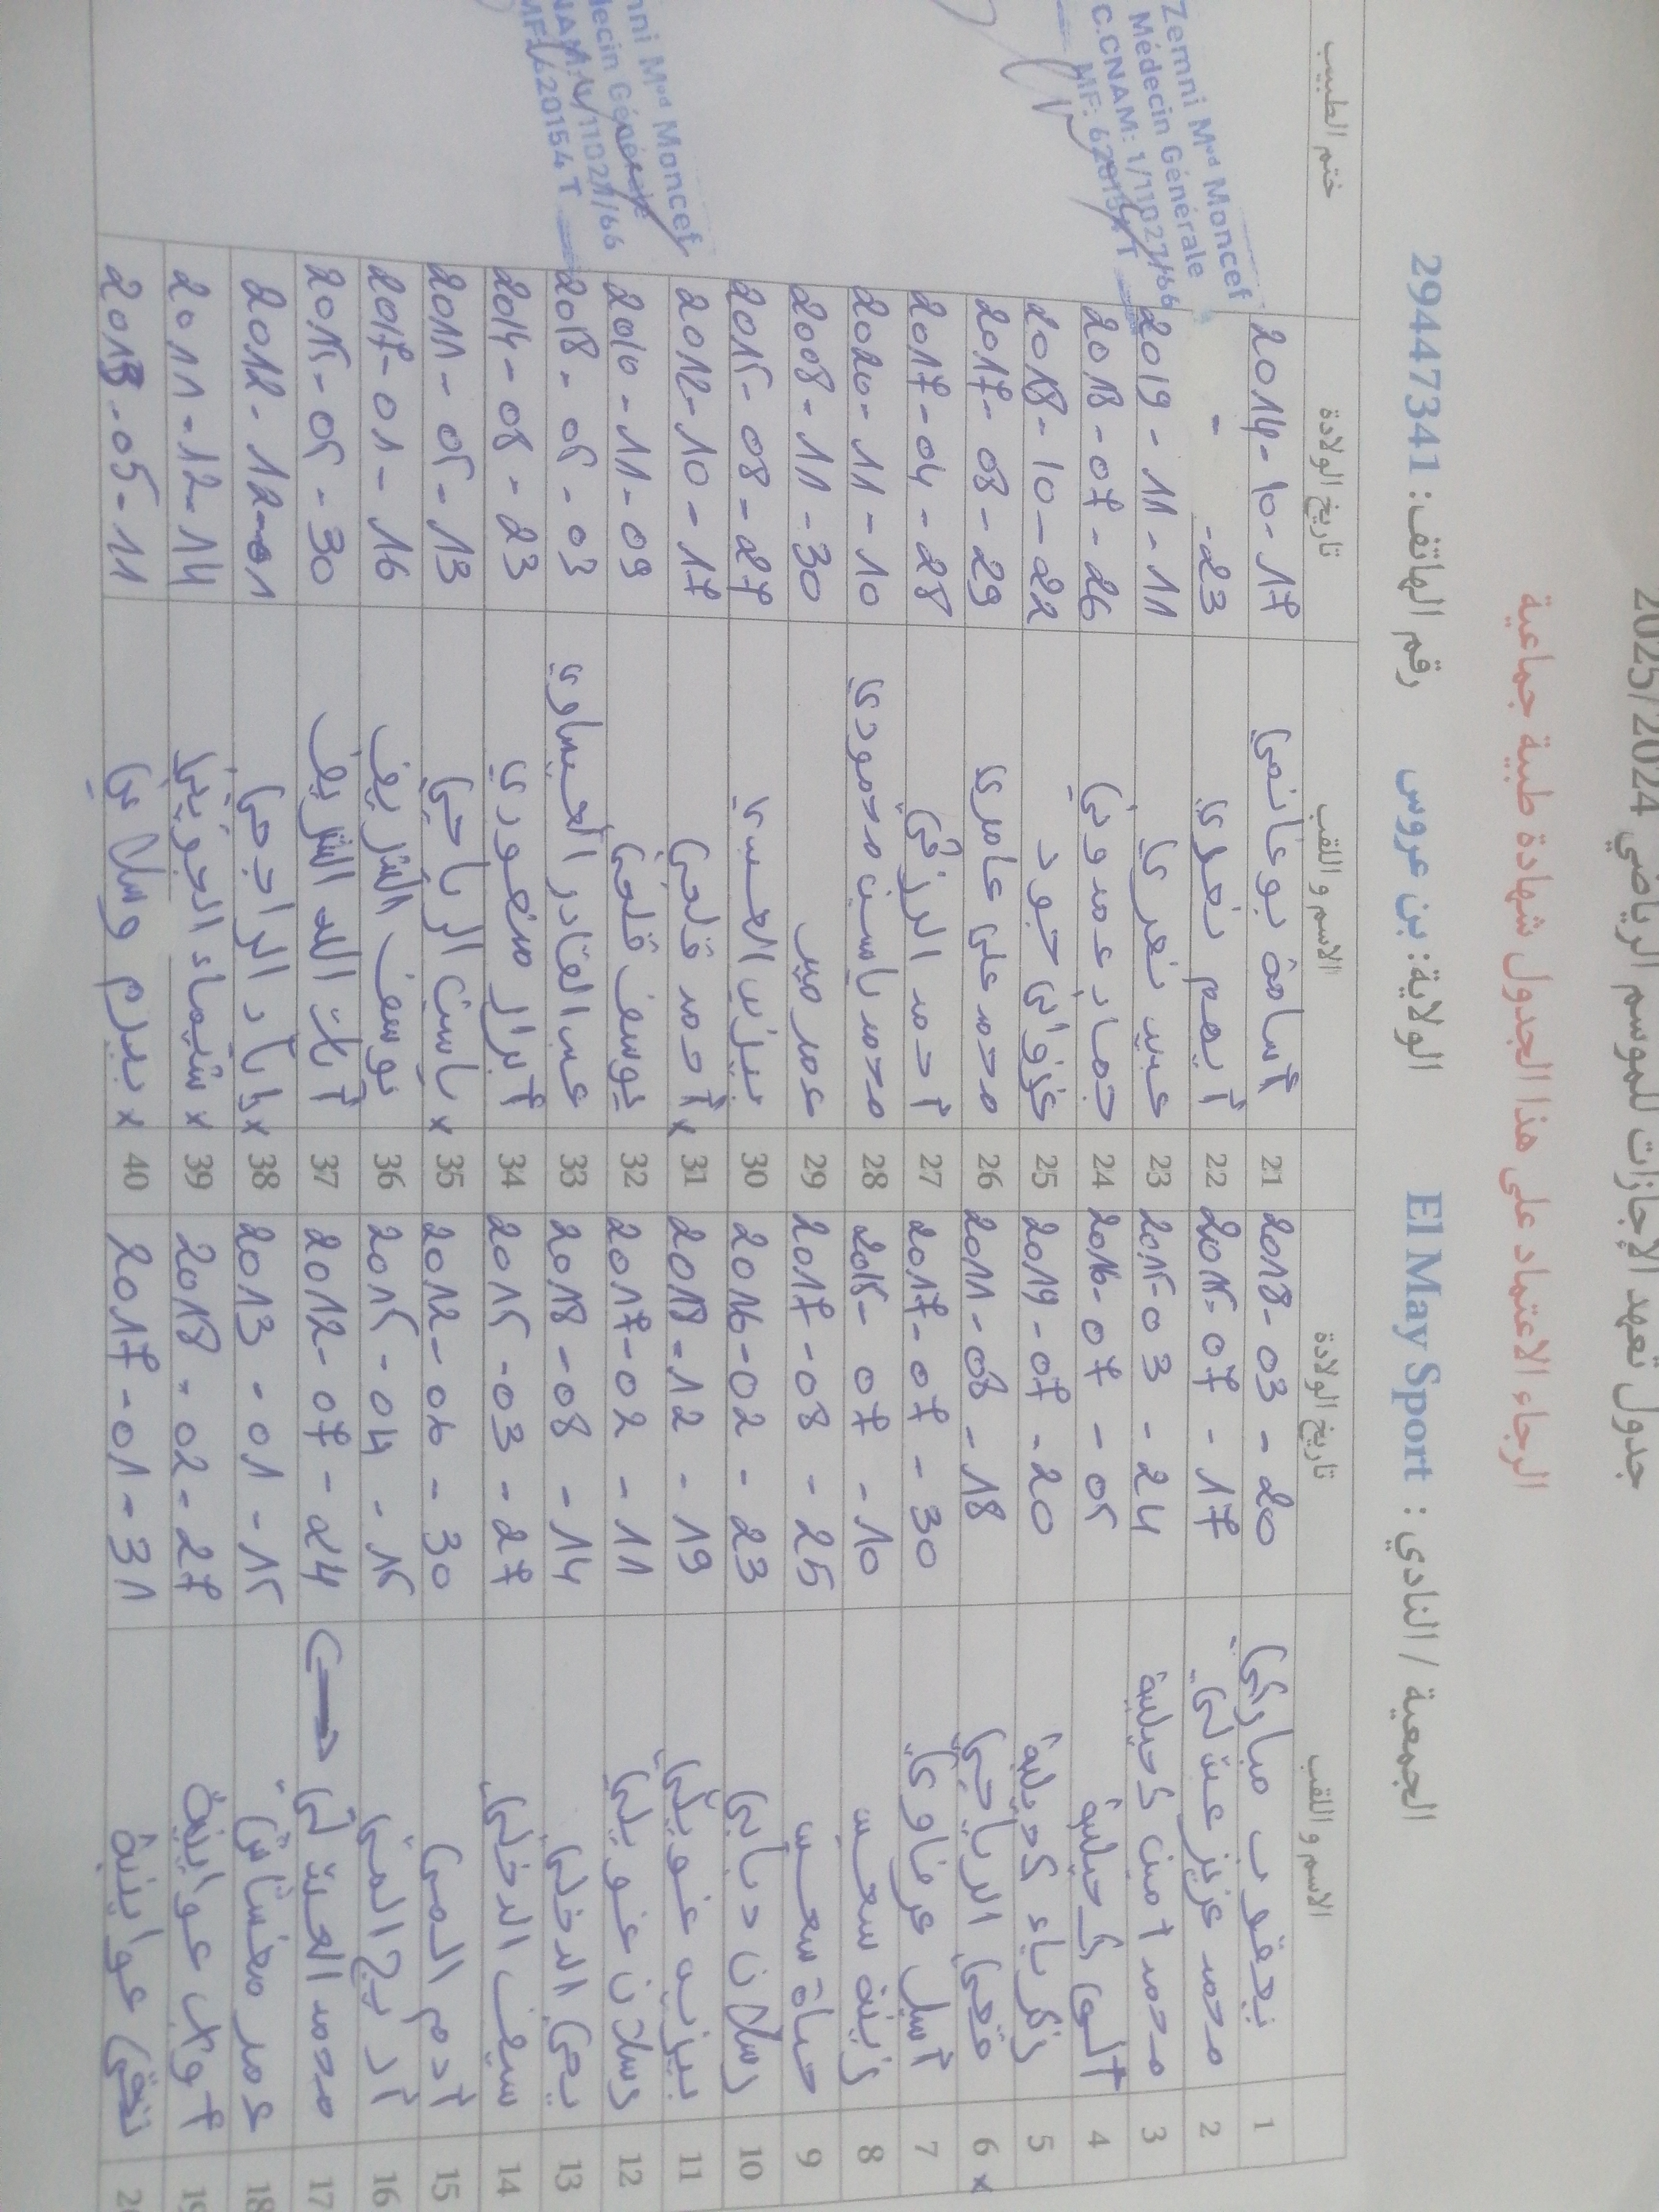 جدول تعهد الإجازات للموسم الرياضي 2025/2024
الرجاء الاعتماد على هذا الجدول شهادة طبية جماعية
الجمعية / النادي : El May Sport الولاية: بن عروس رقم الهاتف: 29447341
الاسم و اللقب تاريخ الولادة الاسم و اللقب تاريخ الولادة ختم الطبيب
1 يعقوب مباركي 2018-03-20 21 أسامة بوغانمي 2014-10-17
2 محمد عزيز 2015-07-17 22 أيهم نغري - -23
3 محمد أمين كحيلية 2015-03-24 23 عبير نغري 2019-11-11
4 كحيلية 2016-07-05 24 عمدوني 2018-07-26
5 زكرياء كحيلية 2019-07-20 25 جود 2018-10-22
6 x الرياحي 2011-08-18 26 محمد علي عامري 2017-08-29
7 أسيل عرفاوي 2017-07-30 27 أحمد الرزقي 2017-04-28
8 زينة 2015-07-10 28 محمد ياسين محمودي 2020-11-10
9 حياة 2017-08-25 29 عمر 2008-11-30
10 رسلان دبابي 2016-02-23 30 2015-08-27
11 غويلي 2018-12-19 31 x أحمد قلعي 2012-10-17
12 رسلان غويلي 2017-02-11 32 يوسف قلعي 2010-11-09
13 يحي الدخلي 2018-08-14 33 عبد القادر العيساوي 2018-05-03
14 سيف الدخلي 2015-03-27 34 أبرار منصوري 2014-08-23
15 آدم المي 2012-06-30 35 x ياسين الرياحي 2011-05-13
16 أريج المي 2015-04-15 36 يوسف الشريف 2017-01-16
17 محمد 2012-07-24 37 آيات الله الشريف 2015-05-30
18 عمر 2013-01-15 38 x إياد الراجحي 2012-12-01
19 عواينية 2018-02-27 39 x شيماء الجويني 2011-12-14
20 عواينية 2017-01-31 40 x بيرم وسلاتي 2013-05-11
Zemni Mᵉᵈ Moncef
Médecin Générale
C.CNAM: 1/11027/66
MF: 620154T
Zemni Mᵉᵈ Moncef
Médecin Générale
CNAM: 1/11027/66
MF: 620154T